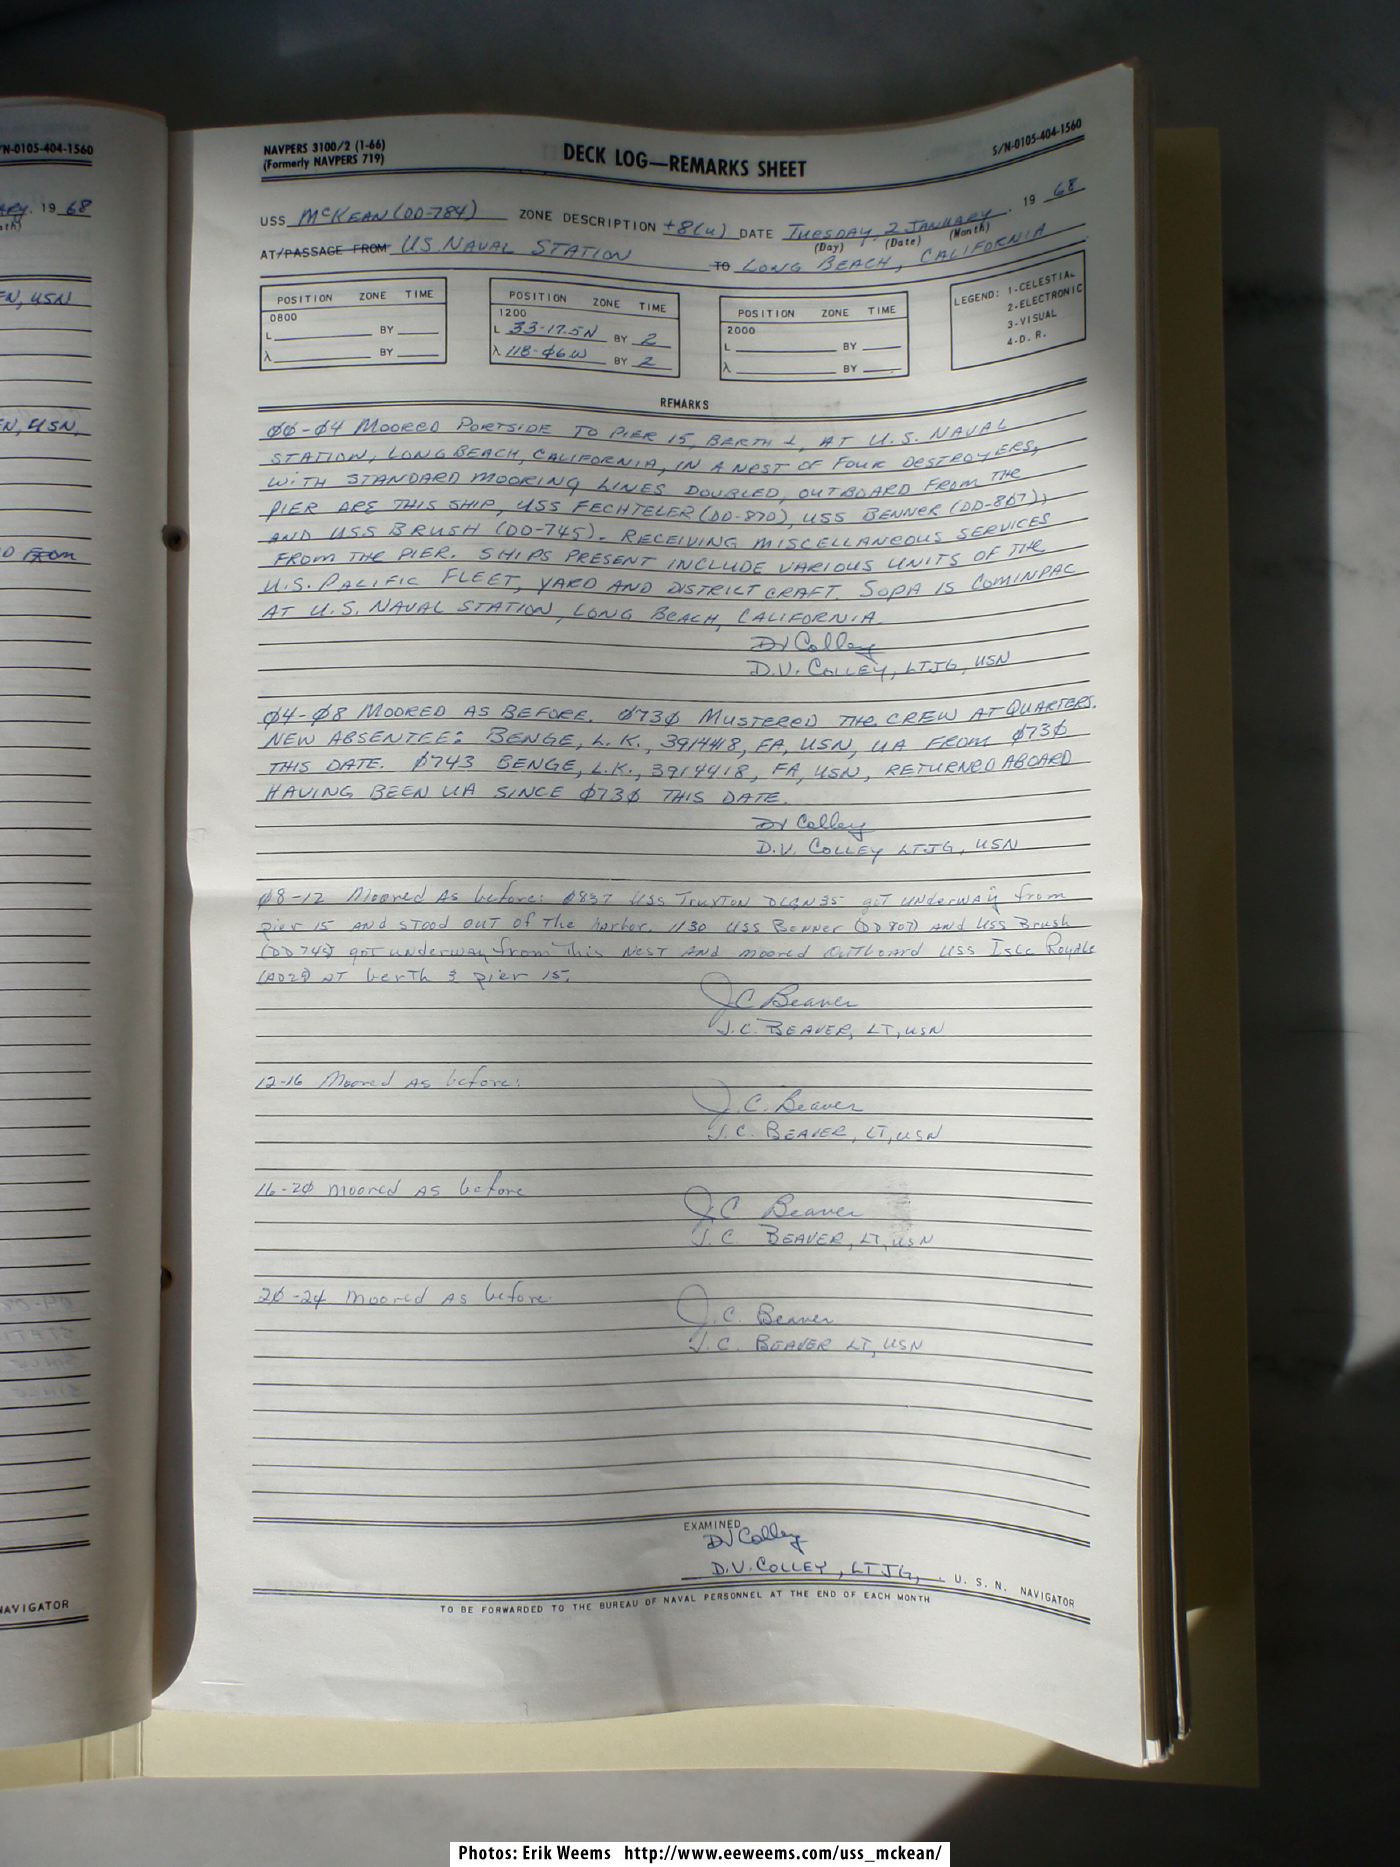 N-0105-404-1560
ARY. 19 68
EN, USN
EN, USN.
D From
NAVIGATOR
NAVPERS 3100/2 (1-66)
(Formerly NAVPERS 719)
DECK LOG—REMARKS SHEET
S/N-0105-404-1560
USS McKEAN (DD-784) ZONE DESCRIPTION +8(U) DATE TUESDAY, 2 JANUARY, 19 68
(Day) (Date) (Month)
AT/PASSAGE FROM US NAVAL STATION TO LONG BEACH, CALIFORNIA
POSITION ZONE TIME
0800
L BY
λ BY
POSITION ZONE TIME
1200
L 33-17.5N BY 2
λ 118-Ø6W BY 2
POSITION ZONE TIME
2000
L BY
λ BY
LEGEND: 1-CELESTIAL
2-ELECTRONIC
3-VISUAL
4-D.R.
REMARKS
ØØ-Ø4 MOORED PORTSIDE TO PIER 15, BERTH 1, AT U.S. NAVAL
STATION, LONG BEACH, CALIFORNIA, IN A NEST OF FOUR DESTROYERS,
WITH STANDARD MOORING LINES DOUBLED, OUTBOARD FROM THE
PIER ARE THIS SHIP, USS FECHTELER (DD-870), USS BENNER (DD-807),
AND USS BRUSH (DD-745). RECEIVING MISCELLANEOUS SERVICES
FROM THE PIER. SHIPS PRESENT INCLUDE VARIOUS UNITS OF THE
U.S. PACIFIC FLEET, YARD AND DISTRICT CRAFT. SOPA IS COMINPAC
AT U.S. NAVAL STATION, LONG BEACH, CALIFORNIA.
DV Colley
D.V. COLLEY, LTJG, USN
Ø4-Ø8 MOORED AS BEFORE. Ø73Ø MUSTERED THE CREW AT QUARTERS.
NEW ABSENTEE: BENGE, L.K., 3914418, FA, USN, UA FROM Ø73Ø
THIS DATE. Ø743 BENGE, L.K., 3914418, FA, USN, RETURNED ABOARD
HAVING BEEN UA SINCE Ø73Ø THIS DATE.
DV Colley
D.V. COLLEY LTJG, USN
Ø8-12 Moored As before: Ø837 USS Truxton DLGN35 got underway from
pier 15 AND STOOD OUT of The harbor. 1130 USS Benner (DD 807) AND USS Brush
(DD 745) got underway from This NEST AND moored OUTboard USS Isle Royale
(AD29) AT berth 3 pier 15.
J C Beaver
J. C. BEAVER, LT, USN
12-16 Moored As before:
J. C. Beaver
J. C. BEAVER, LT, USN
16-2Ø moored AS before
J. C Beaver
J. C. BEAVER, LT, USN
2Ø-24 moored As before.
J. C. Beaver
J. C. BEAVER LT, USN
EXAMINED
DV Colley
D.V. COLLEY, LTJG, U. S. N. NAVIGATOR
TO BE FORWARDED TO THE BUREAU OF NAVAL PERSONNEL AT THE END OF EACH MONTH
Photos: Erik Weems http://www.eeweems.com/uss_mckean/